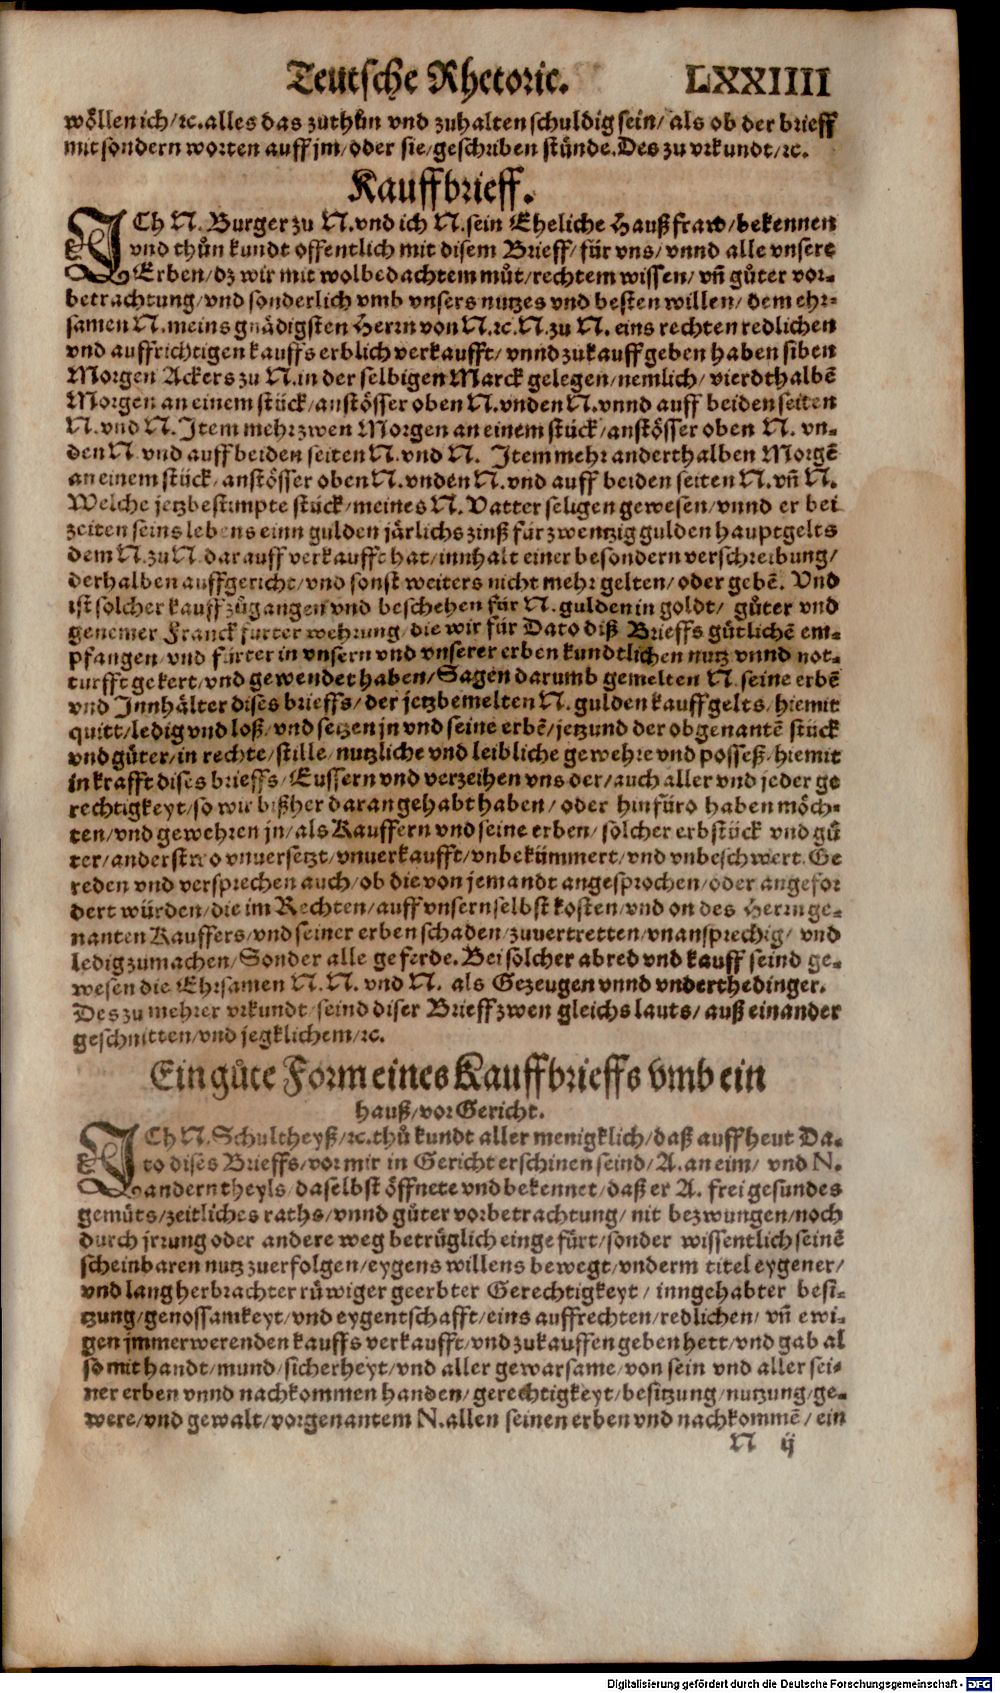 Teutsche Rhetoric. LXXIIII
wöllen ich/ ꝛc. alles das zůthůn vnd zuhalten schuldig sein/ als ob der brieff
mit sondern worten auff jm/ oder sie/ geschriben stünde. Des zu vrkundt/ ꝛc.
Kauffbrieff.
ICh N. Burger zu N. vnd ich N. sein Eheliche Haußfraw/ bekennen
vnd thůn kundt offentlich mit disem Brieff/ für vns/ vnnd alle vnsere
Erben/ dz wir mit wolbedachtem můt/ rechtem wissen/ vñ gůter vor-
betrachtung/ vnd sonderlich vmb vnsers nutzes vnd besten willen/ dem ehr-
samen N. meins gnädigsten Herrn von N. ꝛc. N. zu N. eins rechten redlichen
vnd auffrichtigen kauffs erblich verkaufft/ vnnd zukauff geben haben siben
Morgen Ackers zu N. in der selbigen Marck gelegen/ nemlich/ vierdthalbē
Morgen an einem stück/ anstösser oben N. vnden N. vnnd auff beiden seiten
N. vnd N. Item mehr zwen Morgen an einem stück/ anstösser oben N. vn-
den N. vnd auff beiden seiten N. vnd N. Item mehr anderthalben Morgē
an einem stück/ anstösser oben N. vnden N. vnd auff beiden seiten N. vñ N.
Welche jetzbestimpte stück/ meines N. Vatter seligen gewesen/ vnnd er bei
zeiten seins lebens einn gulden järlichs zinß für zwentzig gulden hauptgelts
dem N. zu N. darauff verkaufft hat/ innhalt einer besondern verschreibung/
derhalben auffgericht/ vnd sonst weiters nicht mehr gelten/ oder gebē. Vnd
ist solcher kauff zůgangen vnd beschehen für N. gulden in goldt/ gůter vnd
genemer Franckfurter wehrung/ die wir für Dato diß Brieffs gůtlichē em-
pfangen/ vnd fürter in vnsern vnd vnserer erben kundtlichen nutz vnnd not-
turfft gekert/ vnd gewendet haben/ Sagen darumb gemelten N. seine erbē
vnd Innhälter dises brieffs/ der jetzbemelten N. gulden kauffgelts/ hiemit
quitt/ ledig vnd loß/ vnd setzen jn vnd seine erbē/ jetzund der obgenantē stück
vnd gůter/ in rechte/ stille/ nutzliche vnd leibliche gewehre vnd posseß/ hiemit
in krafft dises brieffs/ Eussern vnd verzeihen vns der/ auch aller vnd jeder ge
rechtigkeyt/ so wir bißher daran gehabt haben/ oder hinfüro haben möch-
ten/ vnd gewehren jn/ als Kauffern vnd seine erben/ solcher erbstück vnd gů
ter/ anderstwo vnuersetzt/ vnuerkaufft/ vnbekümmert/ vnd vnbeschwert. Ge
reden vnd versprechen auch/ ob die von jemandt angesprochen/ oder angefor
dert würden/ die im Rechten/ auff vnsern selbst kosten/ vnd on des Herrn ge-
nanten Kauffers/ vnd seiner erben schaden/ zuuertretten/ vnansprechig/ vnd
ledig zumachen/ Sonder alle geferde. Bei solcher abred vnd kauff seind ge-
wesen die Ehrsamen N. N. vnd N. als Gezeugen vnnd vnderthedinger.
Des zu mehrer vrkundt/ seind diser Brieff zwen gleichs lauts/ auß einander
geschnitten/ vnd jegklichem/ ꝛc.
Ein gůte Form eines Kauffbrieffs vmb ein
hauß/ vor Gericht.
ICh N. Schultheyß/ ꝛc. thů kundt aller menigklich/ daß auff heut Da-
to dises Brieffs/ vor mir in Gericht erschinen seind/ A. an eim/ vnd N.
andern theyls/ daselbst öffnete vnd bekennet/ daß er A. frei gesundes
gemůts/ zeitliches raths/ vnnd gůter vorbetrachtung/ nit bezwungen/ noch
durch jrrung oder andere weg betrüglich eingefürt/ sonder wissentlich seinē
scheinbaren nutz zuerfolgen/ eygens willens bewegt/ vnderm titel eygener/
vnd lang herbrachter rüwiger geerbter Gerechtigkeyt/ inngehabter besi-
tzung/ genossamkeyt/ vnd eygentschafft/ eins auffrechten/ redlichen/ vñ ewi-
gen jmmerwerenden kauffs verkaufft/ vnd zukauffen geben hett/ vnd gab al
so mit handt/ mund/ sicherheyt/ vnd aller gewarsame/ von sein vnd aller sei-
ner erben vnnd nachkommen handen/ gerechtigkeyt/ besitzung/ nutzung/ ge-
were/ vnd gewalt/ vorgenantem N. allen seinen erben vnd nachkommē/ ein
N ij
Digitalisierung gefördert durch die Deutsche Forschungsgemeinschaft - DFG